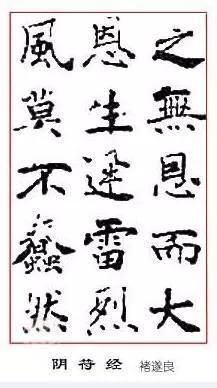 之無恩而大
恩生迅雷烈
風莫不蠢然
阴符经 褚遂良